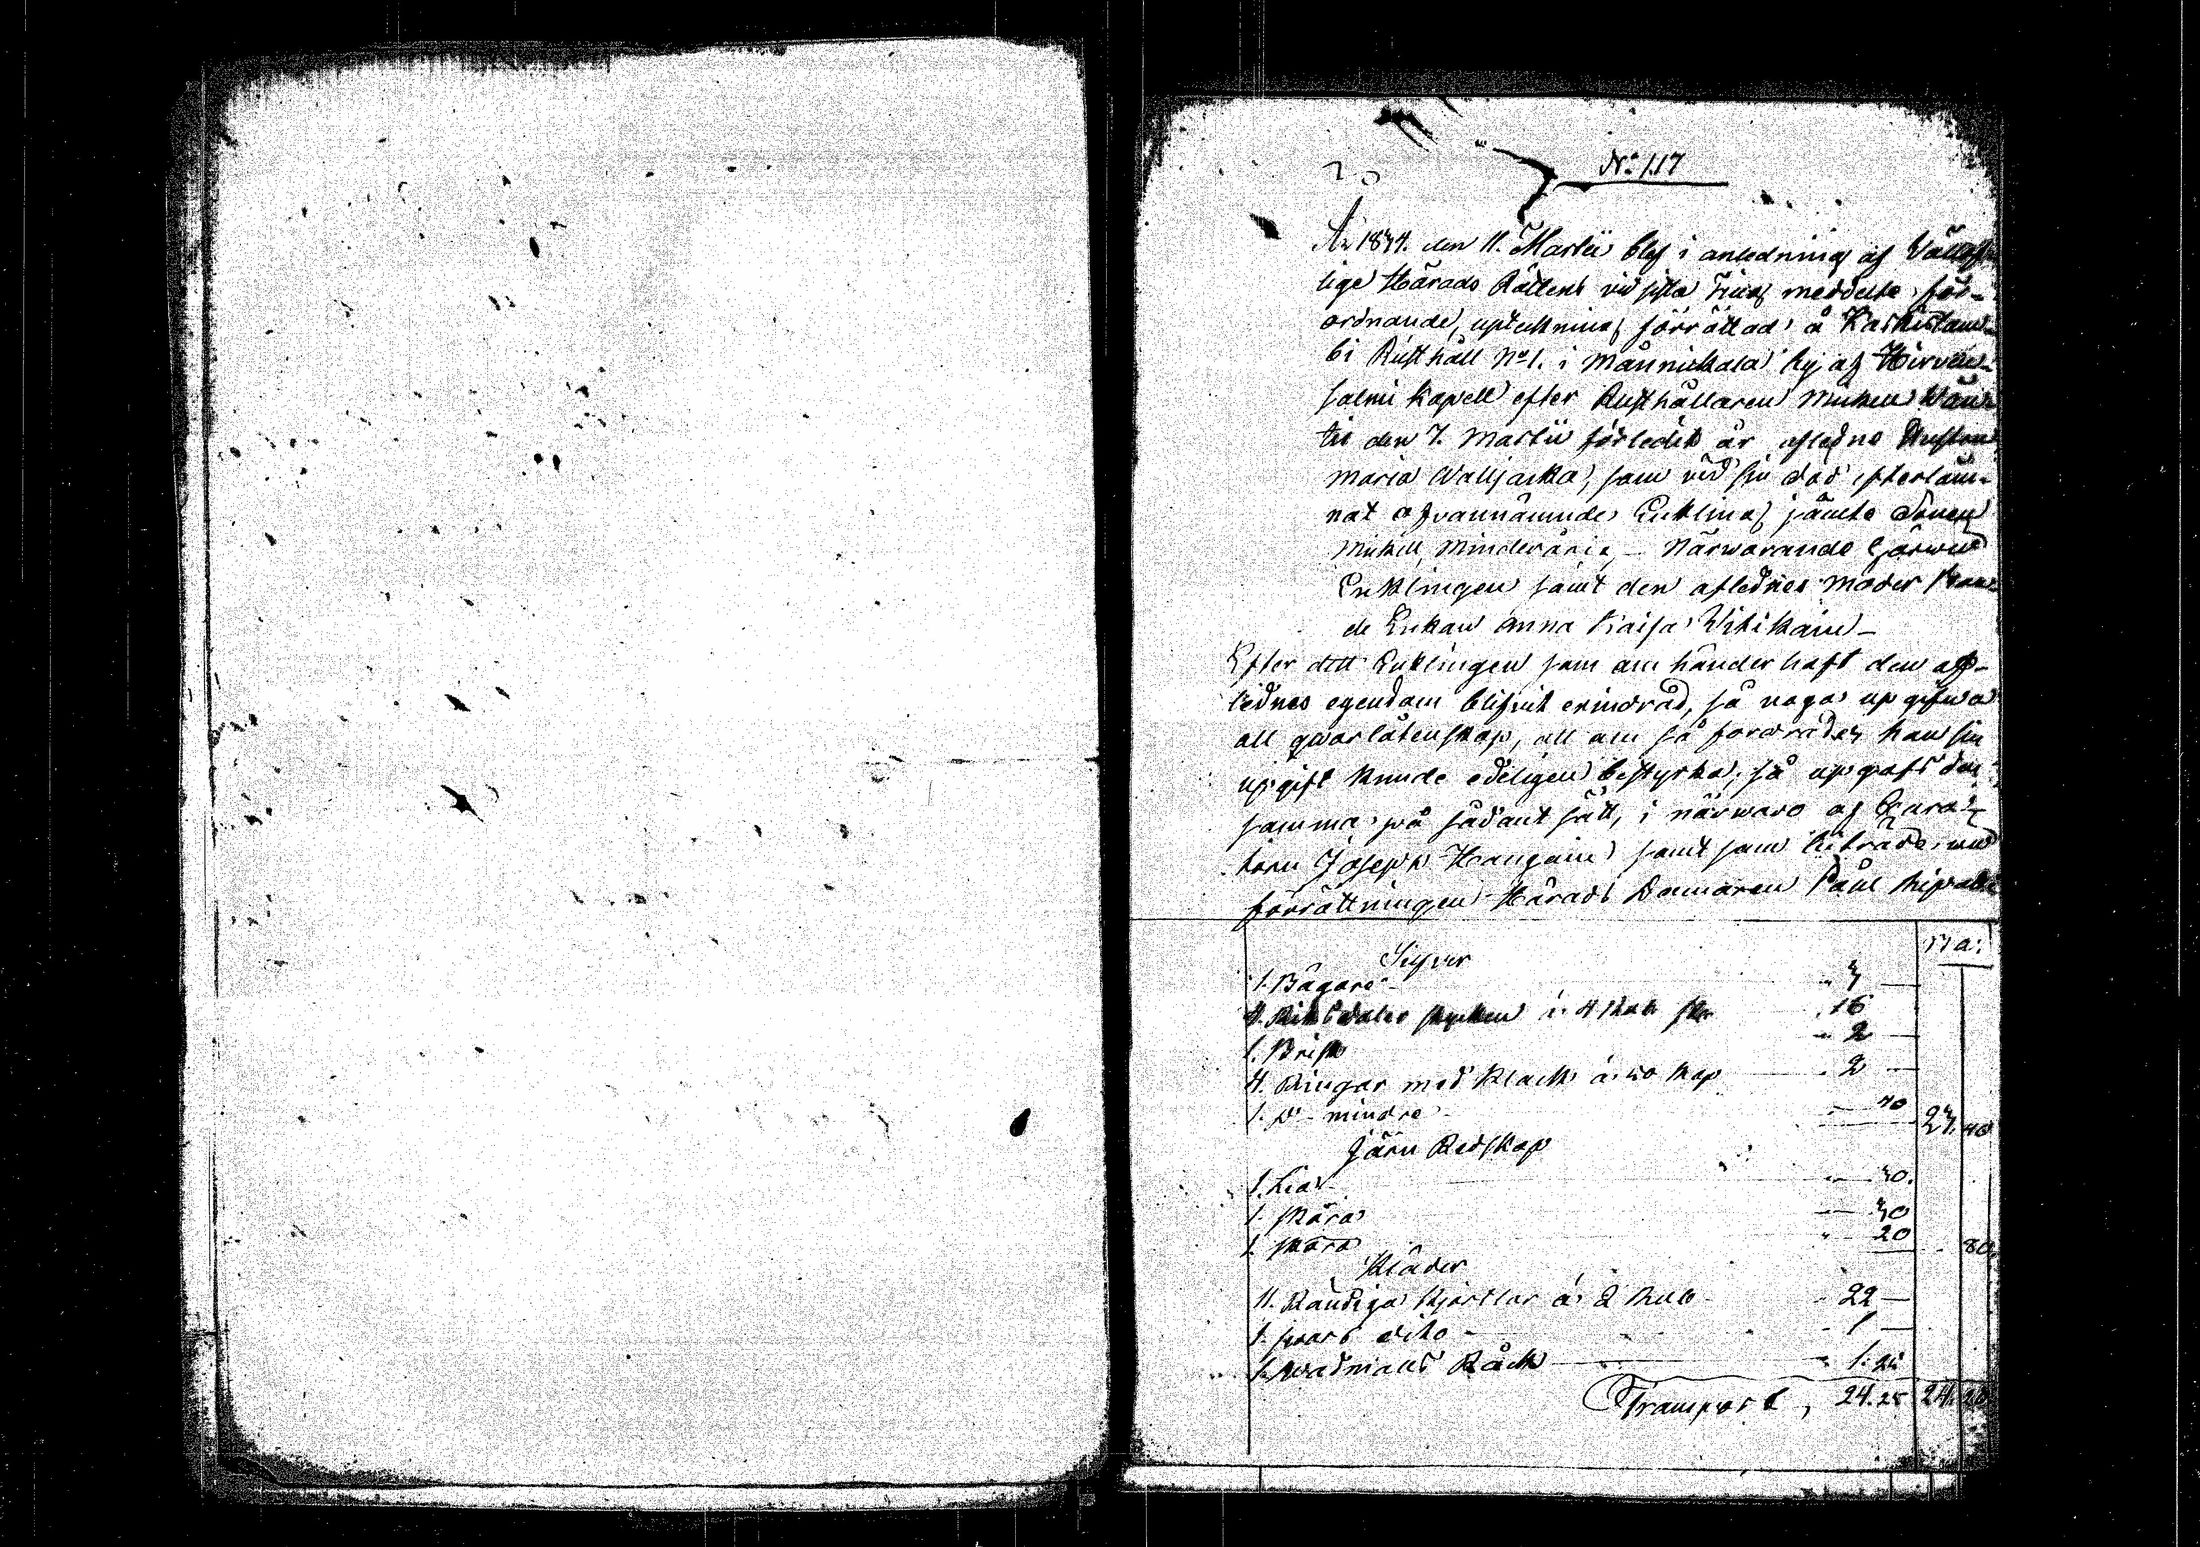 No 117
År 1834. den 11. Martii blef i anledning af Vällof-
lige Härads Rättens vid sista Ting meddelte för-
ordnande, upteckning förrättad å Kaskislam-
bi Rusthåll No 1. i Männickala by af Hirven-
salmi Kapell efter Rusthållaren Michell Wän-
tti den 7. Martii förledit år aflidne Hustru
Maria Valljacka, som vid sin död efterläm-
nat ofvannämnde Enkling jämte Sonen
Mickell, Minderårig, – Närwarande
Enklingen samt den aflednes moder
de Enkan Anna Kaisa Vitikain –
Efter det Enklingen som om händer haft den af-
lednes egendom blifvit erindrad, så noga upgifwa
all qwarlåtenskap, att om så fordrades han sin
upgift kunde edeligen bestyrka; så upgafs den-
samma på sådant sätt, i närwaro af Cura-
torn Joseph Haugain samt som biträde wid
förrättningen Härads Domaren Pål
Silfver
1. Bägare 7 –
4. Riksdaler stycken à 4 Rub st. 16
1. Brisk 2 –
4. Ringar med Klack à 50 kop 2 –
1. Do mindre 40 27. 40
Järn Redskap
1. Lia 30.
1. skära 30
1. skära 20 80
Kläder
11. Randiga Kjortlar à 2 Rub 22 –
1. svart dito 1 –
1. Wadmals Råck 1. 25
Transport, 24. 25